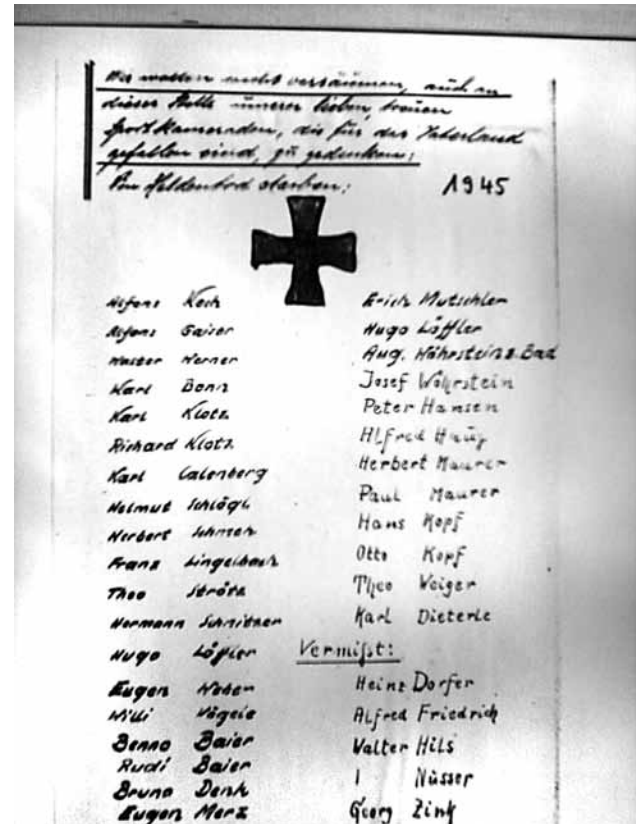 Wir wollen nicht versäumen, auch an
dieser Stelle unserer lieben, treuen
Sportkameraden, die für das Vaterland
gefallen sind, zu gedenken:
Den Heldentod starben:
1945
Alfons Koch
Alfons Gaiser
Werner
Karl Bonn
Karl Klotz
Richard Klotz
Karl Calenberg
Helmut Schlögl
Herbert
Franz Lingelbach
Theo Strötz
Hermann Schnitzer
Hugo Löffler
Eugen Weber
Willi Vögele
Benno Baier
Rudi Baier
Bruno Denk
Eugen Merz
Erich Mutschler
Hugo Löffler
Aug. Wöhrstein z. Bad
Josef Wöhrstein
Peter Hansen
Alfred Haug
Herbert Maurer
Paul Maurer
Hans Kopf
Otto Kopf
Theo Weiger
Karl Dieterle
Vermißt:
Heinz Dorfer
Alfred Friedrich
Walter Hils
I Nüsser
Georg Zink